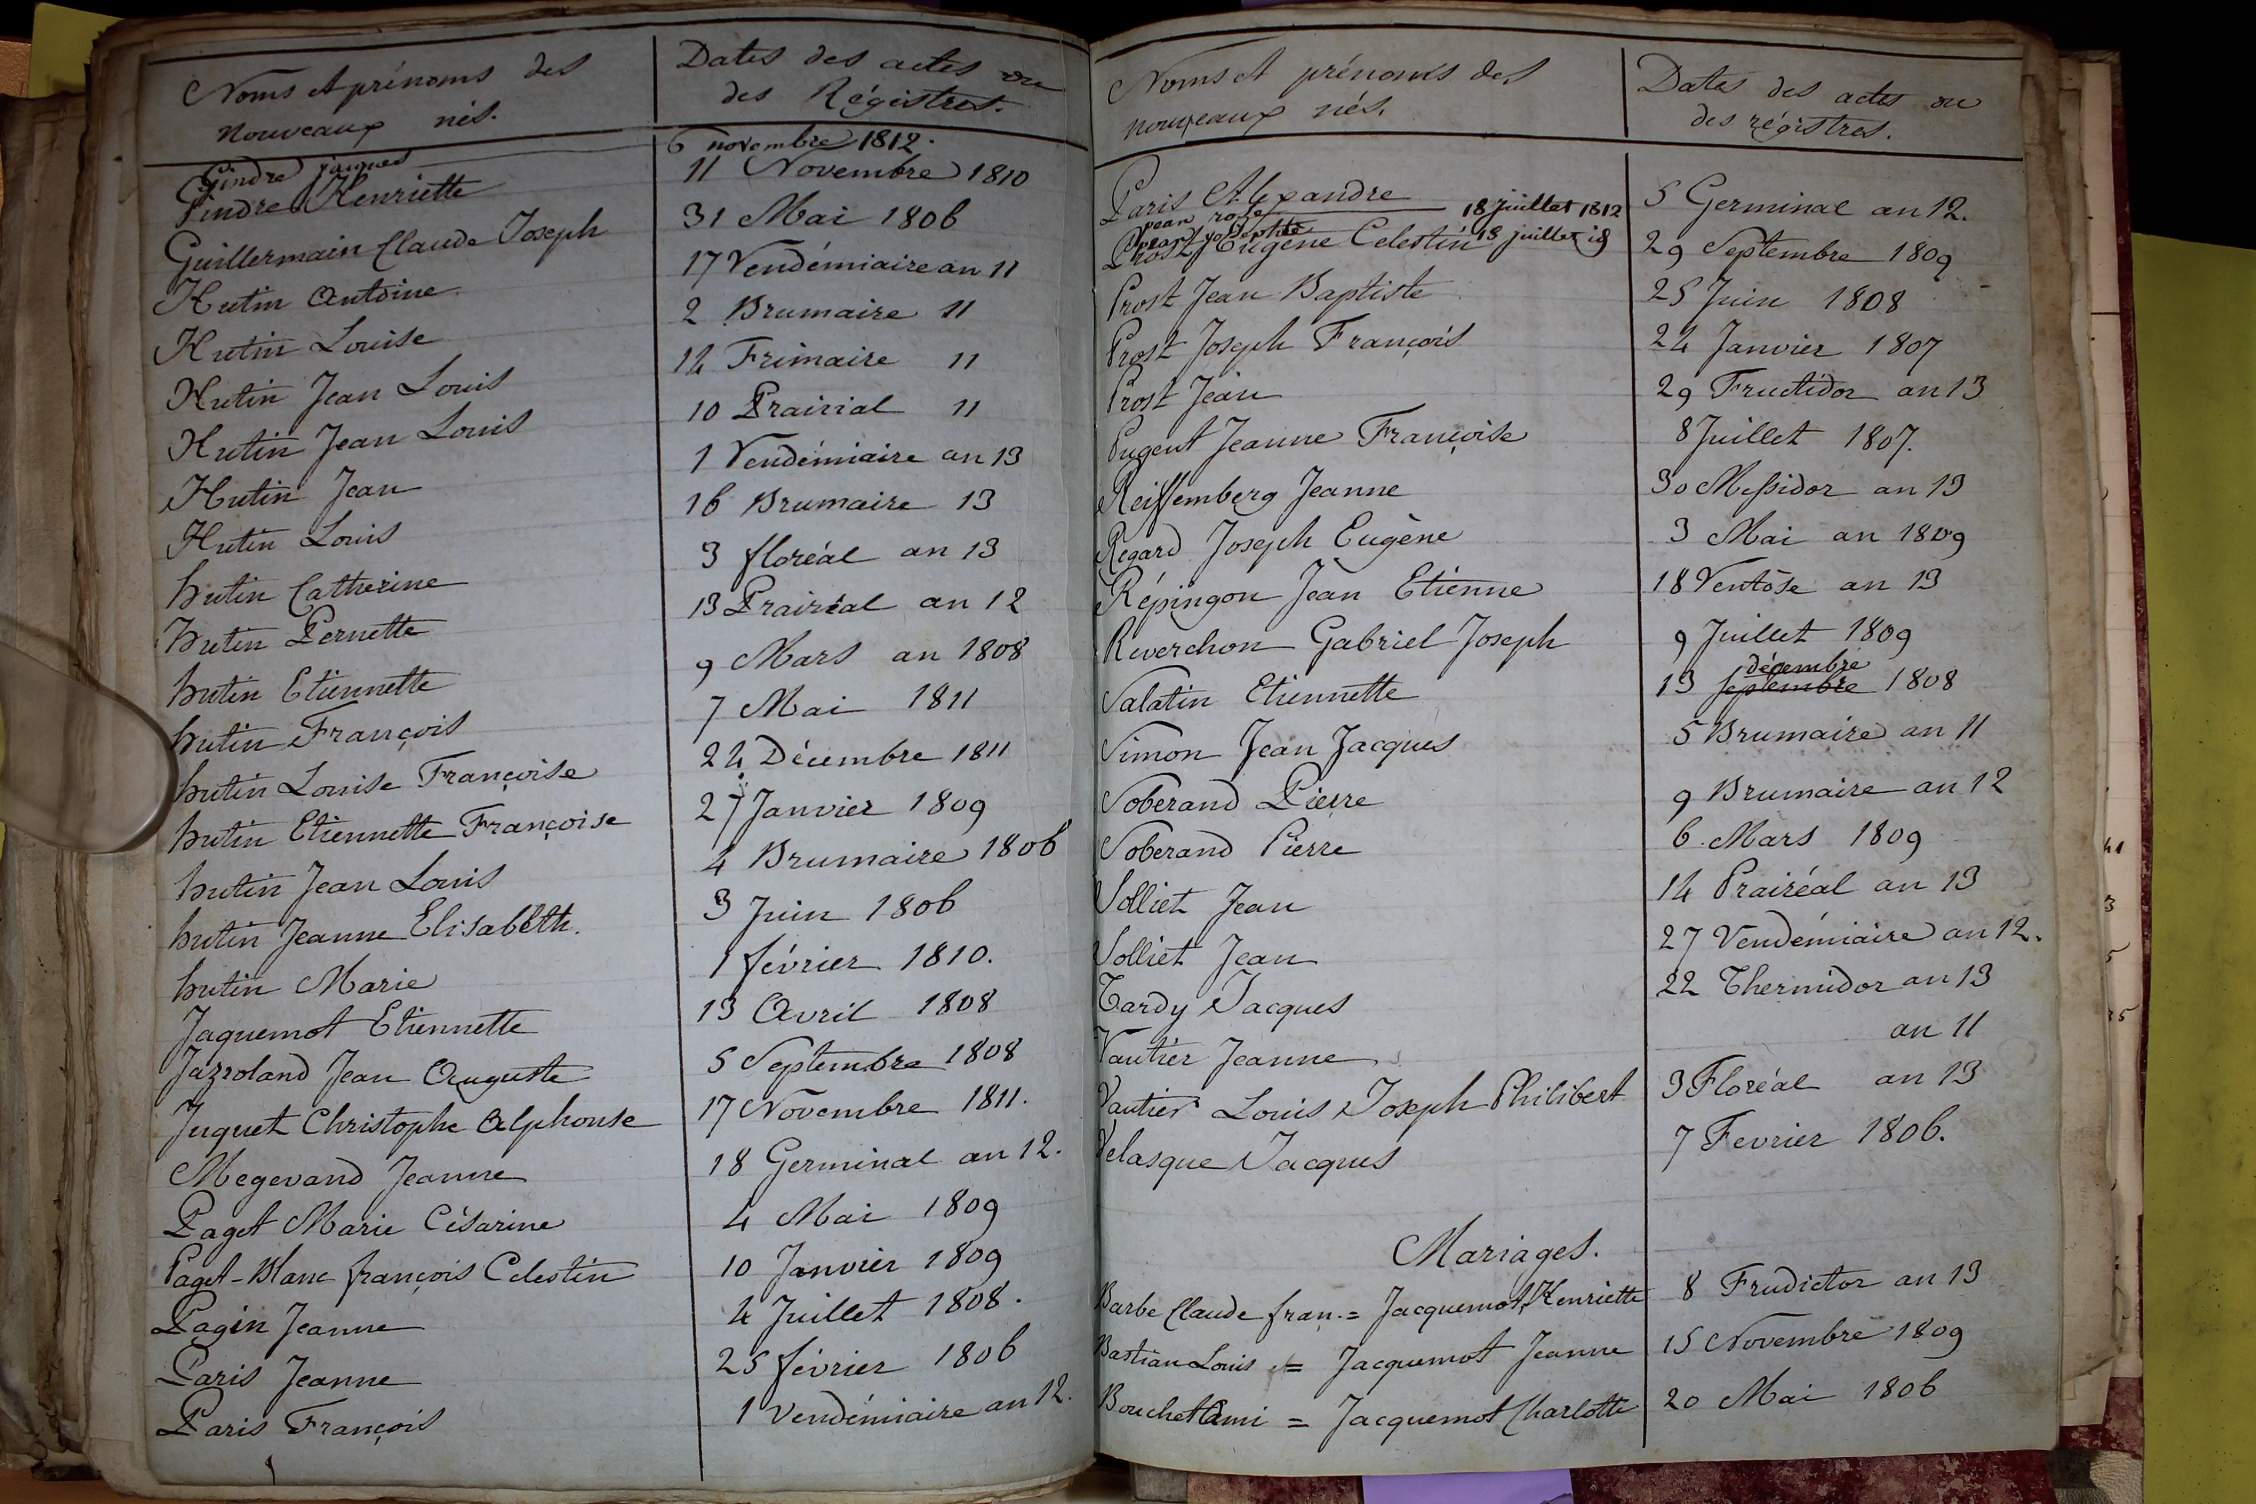 Noms et prénoms des
nouveaux nés.
Dates des actes ou
des Régistres.
Gindre jaques 6 novembre 1812.
Gindre Henriette 11 Novembre 1810
Guillermain Claude Joseph 31 Mai 1806
Hutin Antoine 17 Vendémiaire an 11
Hutin Louise 2 Brumaire 11
Hutin Jean Louis 14 Frimaire 11
Hutin Jean Louis 10 Prairial 11
Hutin Jean 1 Vendémiaire an 13
Hutin Louis 16 Brumaire 13
hutin Catherine 3 floréal an 13
hutin Pernette 13 Prairéal an 12
hutin Etiennette 9 Mars an 1808
hutin François 7 Mai 1811
hutin Louise Françoise 24 Décembre 1811
hutin Etiennette Françoise 27 Janvier 1809
hutin Jean Louis 4 Brumaire 1806
hutin Jeanne Elisabeth. 3 Juin 1806
hutin Marie 1 février 1810.
Jaquemot Etiennette 13 Avril 1808
Jazroland Jean Auguste 5 Septembre 1808
Juquet Christophe Alphonse 17 Novembre 1811.
Megevand Jeanne 18 Germinal an 12.
Paget Marie Césarine 4 Mai 1809
Paget-Blanc françois Celestin 10 Janvier 1809
Pagin Jeanne 4 Juillet 1808.
Paris Jeanne 25 février 1806
Paris François 1 Vendémiaire an 12.
Noms et prénoms des
nouveaux nés.
Dates des actes ou
des régistres.
Paris Alexandre 5 Germinal an 12.
rose 18 juillet 1812
18 juillet 18
Prost Eugène Celestin 29 Septembre 1809
Prost Jean Baptiste 25 Juin 1808
Prost Joseph François 24 Janvier 1807
Prost Jean 29 Fructidor an 13
Pugent Jeanne Françoise 8 Juillet 1807.
Reiffemberg Jeanne 30 Messidor an 13
Regard Joseph Eugène 3 Mai an 1809
Répingon Jean Etienne 18 Ventôse an 13
Reverchon Gabriel Joseph 9 Juillet 1809
décembre
Salatin Etiennette 13 septembre 1808
Simon Jean Jacques 5 Brumaire an 11
Soberand Pierre 9 Brumaire an 12
Soberand Pierre 6 Mars 1809
Solliet Jean 14 Prairéal an 13
Solliet Jean 27 Vendémiaire an 12.
Tardy Jacques 22 Thermidor an 13
Vautier Jeanne an 11
Vautier Louis Joseph Philibert 3 Floréal an 13
Velasque Jacques 7 Fevrier 1806.
Mariages.
Barbe Claude fran. = Jacquemot Henriette 8 Frudictor an 13
Bastian Louis = Jacquemot Jeanne 15 Novembre 1809
Bouchet Ami = Jacquemot Charlotte 20 Mai 1806